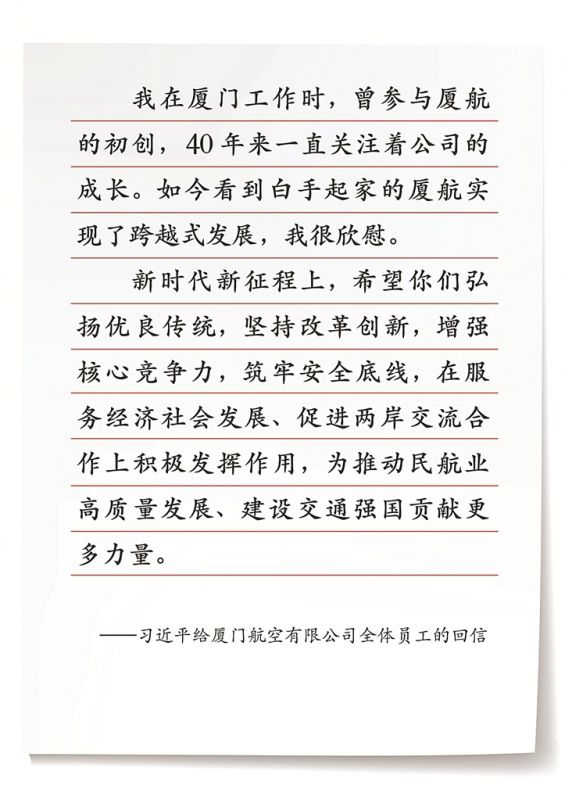 我在厦门工作时，曾参与厦航
的初创，40年来一直关注着公司的
成长。如今看到白手起家的厦航实
现了跨越式发展，我很欣慰。
新时代新征程上，希望你们弘
扬优良传统，坚持改革创新，增强
核心竞争力，筑牢安全底线，在服
务经济社会发展、促进两岸交流合
作上积极发挥作用，为推动民航业
高质量发展、建设交通强国贡献更
多力量。
——习近平给厦门航空有限公司全体员工的回信